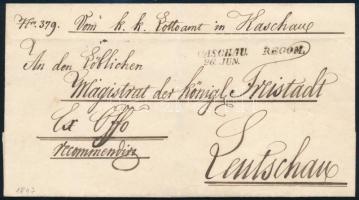 Nro. 379. Vom k. k. Lottoamt in Kaschau
CASCHAU. RECOM.
26. JUN.
An den Löblichen
Magistrat der Königl. Freistadt
Ex Offo
recommendirt
Leutschau
1847